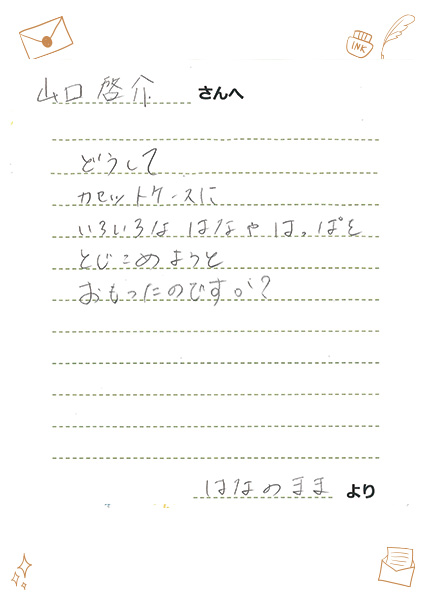 山口 啓介 さんへ
どうして
カセットケースに
いろいろな はなや はっぱを
とじこめようと
おもったのですか?
はなのまま より
INK